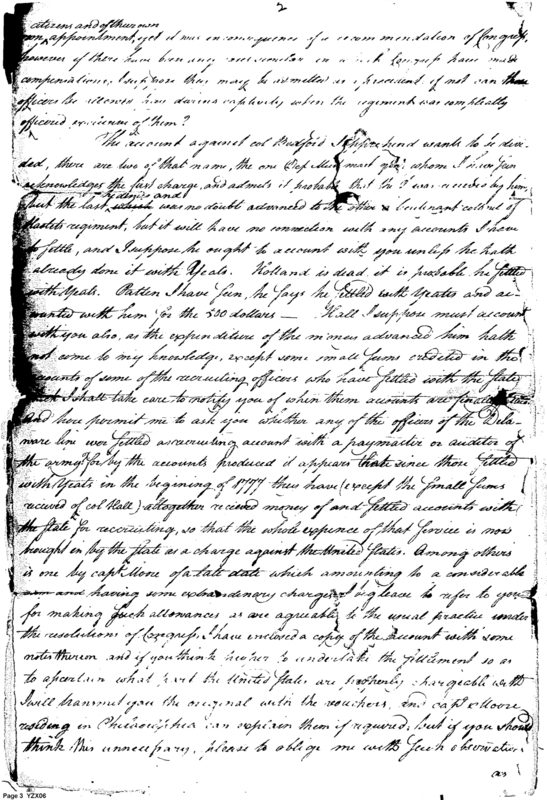 2
citizens and of their own
appointment, yet it was in consequence of a recommendation of Congress,
however if there have been any recommendation in which Congress have made
compensations, I suppose that may be admitted as a precedent, if not can the
officers be allowed here during captivity when the regiment was compleatly
officered exclusive of them?
The account against col Bedford I apprehend wants to be divi-
ded, there are two of that name, the one Dep. Muster mast. Genl. whom I have seen
acknowledges the first charge, and admits it probable that the 2d was received by him,
but the last was no doubt advanced to the other a lieutenant colonel of
Haslets regiment, but it will have no connection with any accounts I have
to settle, and I suppose he ought to account with you unless he hath
already done it with Yeats. Holland is dead, it is probable he settled
with Yeats. Patten I have seen, he says he settled with Yeates and ac-
counted with him for the 500 dollars — Hall I suppose must account
with you also, as the expenditure of the monies advanced him hath
not come to my knowledge, except some small sums credited in the
accounts of some of the recruiting officers who have settled with the State,
I shall take care to notify you of when them accounts are
and here permit me to ask you whether any of the officers of the Dela-
ware line ever settled a recruiting account with a paymaster or auditor of
the army? for by the accounts produced it appears that since those settled
with Yeats in the begining of 1777 they have (except the small sums
received of col Hall) altogether received money of and settled accounts with
the State for recruiting, so that the whole expence of that service is now
brought in by the State as a charge against the United States. Among others
is one by capt Moore of a late date which amounting to a considerable
and having some extraordinary charges I beg leave to refer to you
for making such allowances as are agreeable to the usual practice under
the resolutions of Congress. I have enclosed a copy of the account with some
notes thereon and if you think proper to undertake the settlement so as
to ascertain what part the United States are properly chargeable with
I will transmit you the original with the vouchers, and capt Moore
residing in Philadelphia can explain them if required, but if you should
think this unnecessary, please to oblige me with such observations
as
Page 3 YZX06